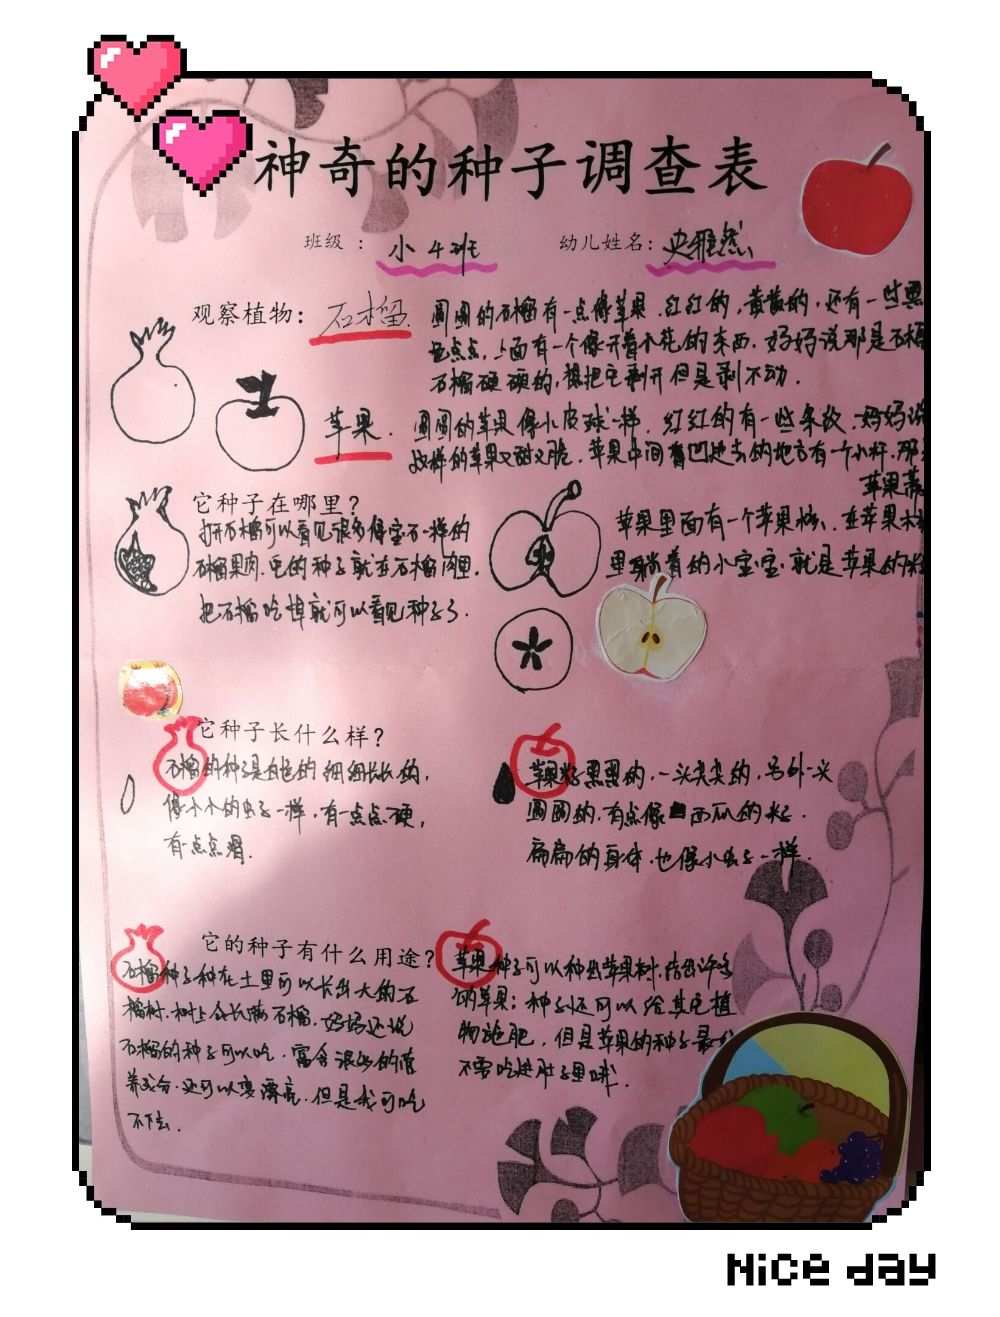 神奇的种子调查表
班级：小4班 幼儿姓名：史雅然
观察植物：石榴 圆圆的石榴有一点像苹果，红红的，黄黄的，还有一些黑
色点点，上面有一个像开着小花的东西，妈妈说那是石榴
石榴硬硬的，想把它剥开但是剥不动.
苹果. 圆圆的苹果像小皮球一样，红红的有一些条纹，妈妈说
这样的苹果又甜又脆，苹果中间有凹进去的地方有一个小杆，那
苹果蒂
它种子在哪里？
打开石榴可以看见很多像宝石一样的
石榴果肉，它的种子就在石榴肉里，
把石榴吃掉就可以看见种子了.
苹果里面有一个苹果核，在苹果核
里躺着的小宝宝就是苹果的
它种子长什么样？
石榴的种子是白色的细细长长的，
像小小的虫子一样，有一点点硬，
有一点点滑.
苹果籽黑黑的，一头尖尖的，另外一头
圆圆的，有点像西瓜的籽.
扁扁的身体，也像小虫子一样.
它的种子有什么用途？
石榴种子种在土里可以长出大的石
榴树，树上会长满石榴，妈妈还说
石榴的种子可以吃，富含很多的营
养成分，还可以变漂亮，但是我可吃
不下去.
苹果种子可以种出苹果树，结出许多
的苹果；种子还可以给其它植
物施肥，但是苹果的种子最好
不要吃进肚子里哦.
Nice day